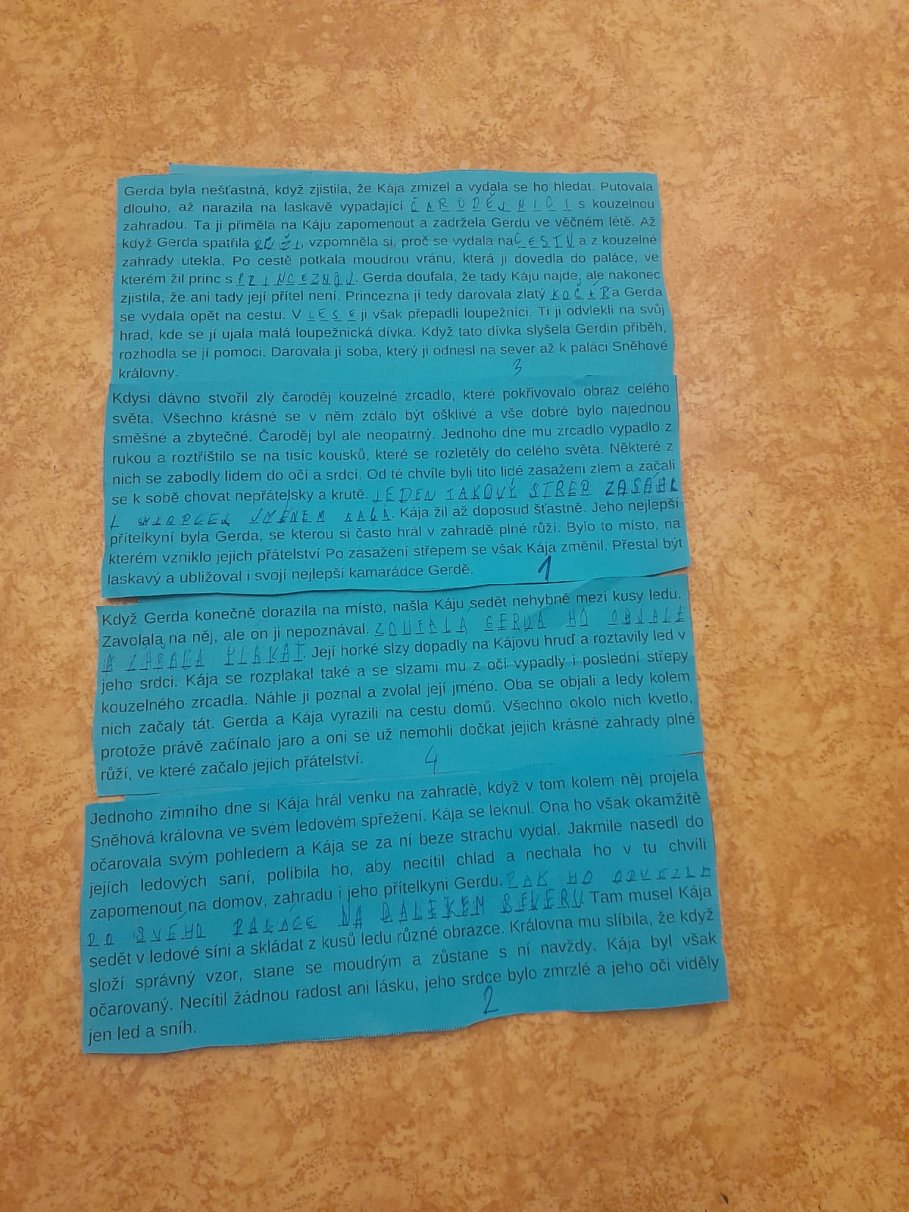 Gerda byla nešťastná, když zjistila, že Kája zmizel a vydala se ho hledat. Putovala
dlouho, až narazila na laskavě vypadající ČARODĚJNICI s kouzelnou
zahradou. Ta ji přiměla na Káju zapomenout a zadržela Gerdu ve věčném létě. Až
když Gerda spatřila RŮŽI, vzpomněla si, proč se vydala na CESTU a z kouzelné
zahrady utekla. Po cestě potkala moudrou vránu, která ji dovedla do paláce, ve
kterém žil princ s PRINCEZNOU. Gerda doufala, že tady Káju najde, ale nakonec
zjistila, že ani tady její přítel není. Princezna jí tedy darovala zlatý KOČÁR a Gerda
se vydala opět na cestu. V LESE ji však přepadli loupežníci. Ti ji odvlekli na svůj
hrad, kde se jí ujala malá loupežnická dívka. Když tato dívka slyšela Gerdin příběh,
rozhodla se jí pomoci. Darovala jí soba, který ji odnesl na sever až k paláci Sněhové
královny.
3
Kdysi dávno stvořil zlý čaroděj kouzelné zrcadlo, které pokřivovalo obraz celého
světa. Všechno krásné se v něm zdálo být ošklivé a vše dobré bylo najednou
směšné a zbytečné. Čaroděj byl ale neopatrný. Jednoho dne mu zrcadlo vypadlo z
rukou a roztříštilo se na tisíc kousků, které se rozletěly do celého světa. Některé z
nich se zabodly lidem do očí a srdcí. Od té chvíle byli tito lidé zasaženi zlem a začali
se k sobě chovat nepřátelsky a krutě. JEDEN TAKOVÝ STŘEP ZASÁHL
I JMÉNEM KÁJA. Kája žil až doposud šťastně. Jeho nejlepší
přítelkyní byla Gerda, se kterou si často hrál v zahradě plné růží. Bylo to místo, na
kterém vzniklo jejich přátelství Po zasažení střepem se však Kája změnil. Přestal být
laskavý a ubližoval i svojí nejlepší kamarádce Gerdě.
1
Když Gerda konečně dorazila na místo, našla Káju sedět nehybně mezi kusy ledu.
Zavolala na něj, ale on ji nepoznával. ZOUFALÁ GERDA HO OBJALA
A ZAČALA PLAKAT. Její horké slzy dopadly na Kájovu hruď a roztavily led v
jeho srdci. Kája se rozplakal také a se slzami mu z očí vypadly i poslední střepy
kouzelného zrcadla. Náhle ji poznal a zvolal její jméno. Oba se objali a ledy kolem
nich začaly tát. Gerda a Kája vyrazili na cestu domů. Všechno okolo nich kvetlo,
protože právě začínalo jaro a oni se už nemohli dočkat jejich krásné zahrady plné
růží, ve které začalo jejich přátelství.
4
Jednoho zimního dne si Kája hrál venku na zahradě, když v tom kolem něj projela
Sněhová královna ve svém ledovém spřežení. Kája se leknul. Ona ho však okamžitě
očarovala svým pohledem a Kája se za ní beze strachu vydal. Jakmile nasedl do
jejích ledových saní, políbila ho, aby necítil chlad a nechala ho v tu chvíli
zapomenout na domov, zahradu i jeho přítelkyni Gerdu. PAK HO ODVEZLA
DO SVÉHO PALÁCE NA DALEKÉM SEVERU Tam musel Kája
sedět v ledové síni a skládat z kusů ledu různé obrazce. Královna mu slíbila, že když
složí správný vzor, stane se moudrým a zůstane s ní navždy. Kája byl však
očarovaný. Necítil žádnou radost ani lásku, jeho srdce bylo zmrzlé a jeho oči viděly
jen led a sníh.
2